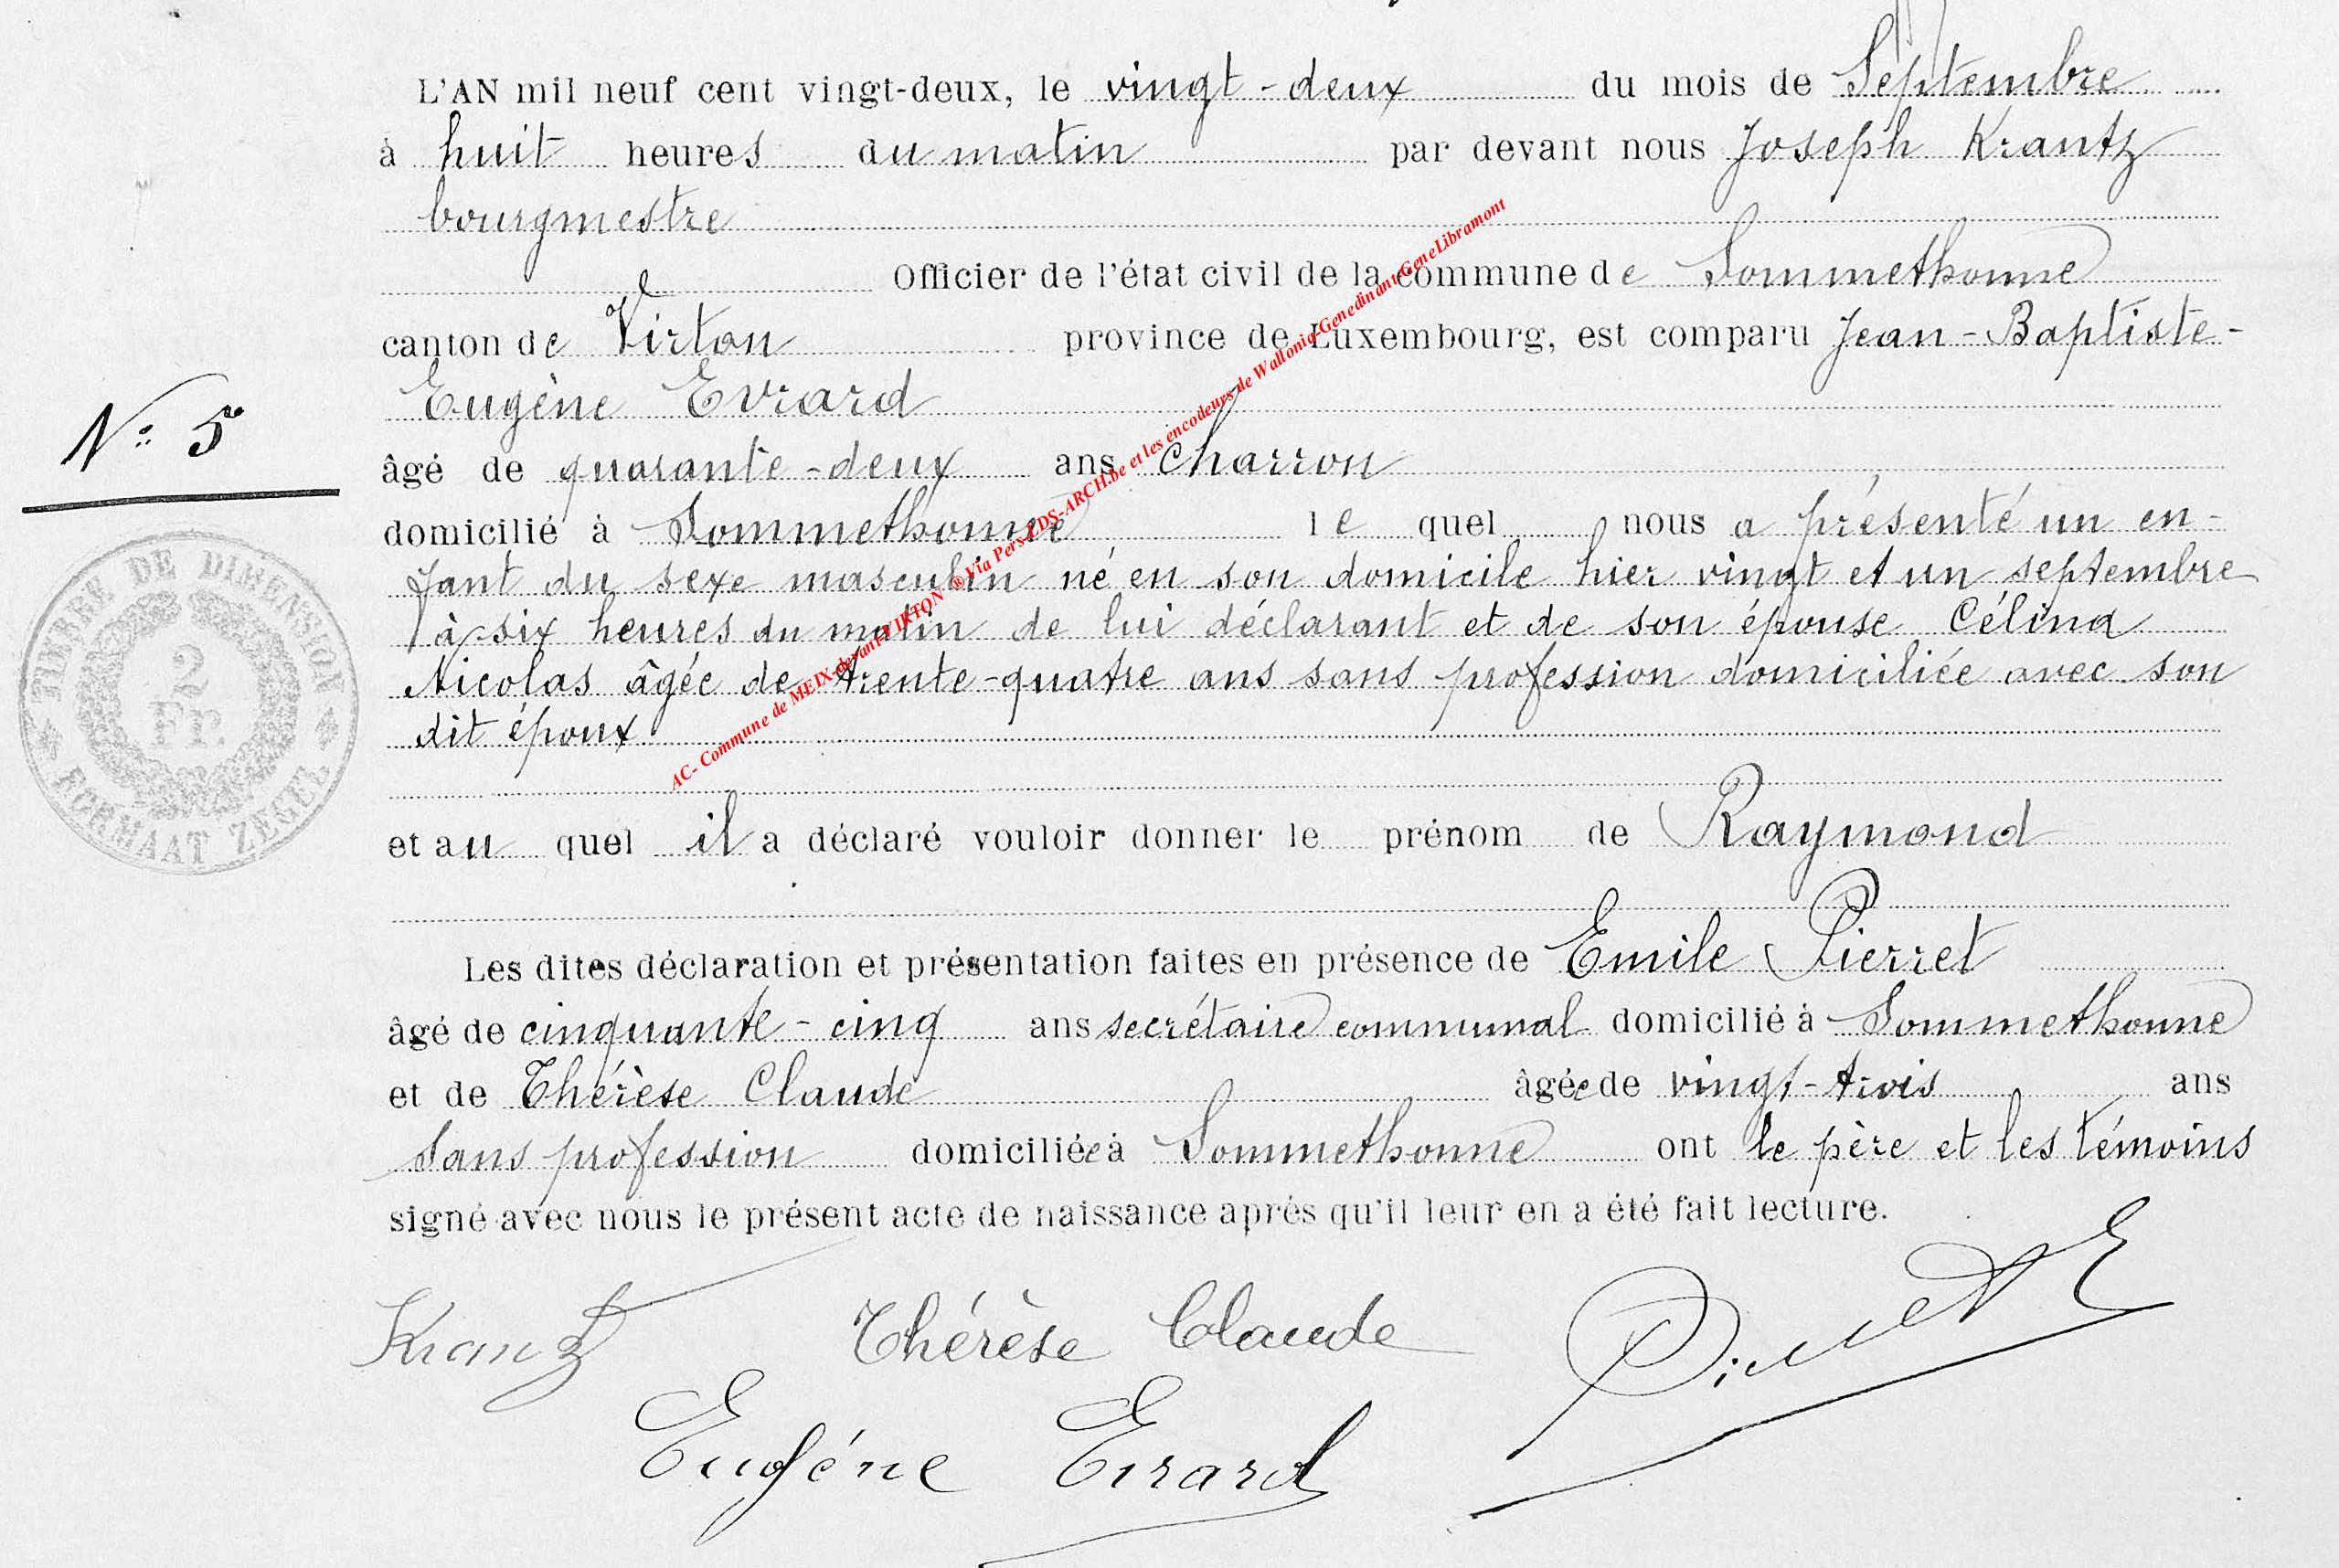 L'AN mil neuf cent vingt-deux, le vingt-deux du mois de Septembre
à huit heures du matin par devant nous Joseph Krantz
bourgmestre
Officier de l'état civil de la commune de Sommethonne
canton de Virton province de Luxembourg, est comparu Jean-Baptiste-
Eugène Evrard
N° 5
âgé de quarante-deux ans charron
domicilié à Sommethonne lequel nous a présenté un en-
fant du sexe masculin né en son domicile hier vingt et un septembre
à six heures du matin de lui déclarant et de son épouse Célina
Nicolas âgée de trente-quatre ans sans profession domiciliée avec son
dit époux
et au quel il a déclaré vouloir donner le prénom de Raymond
Les dites déclaration et présentation faites en présence de Emile Pierret
âgé de cinquante-cinq ans secrétaire communal domicilié à Sommethonne
et de Thérèse Claude âgée de vingt-trois ans
sans profession domiciliée à Sommethonne ont le père et les témoins
signé avec nous le présent acte de naissance après qu'il leur en a été fait lecture.
Krantz Thérèse Claude Pierret E
Eugéne Evrard
TIMBRE DE DIMENSION
2
Fr.
FORMAAT ZEGEL
AC- Commune de MEIX-devant-VIRTON ® Via Pers-LDS-ARCH.be et les encodeurs de Wallonia-Genedinant-GeneLibramont